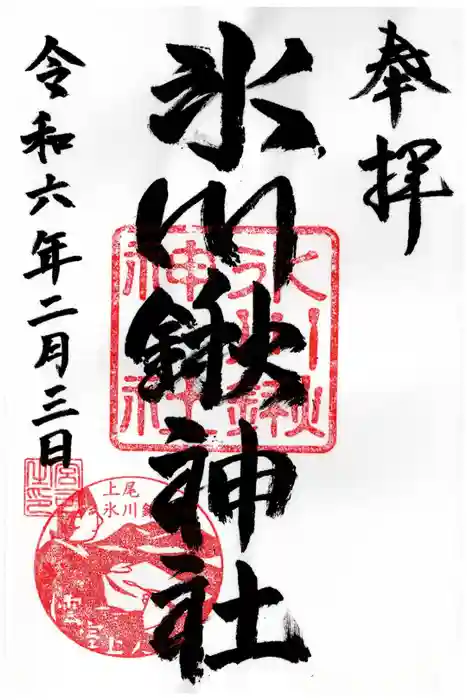 奉拝
氷川鍬神社
令和六年二月三日
氷川鍬神社
上尾
氷川鍬